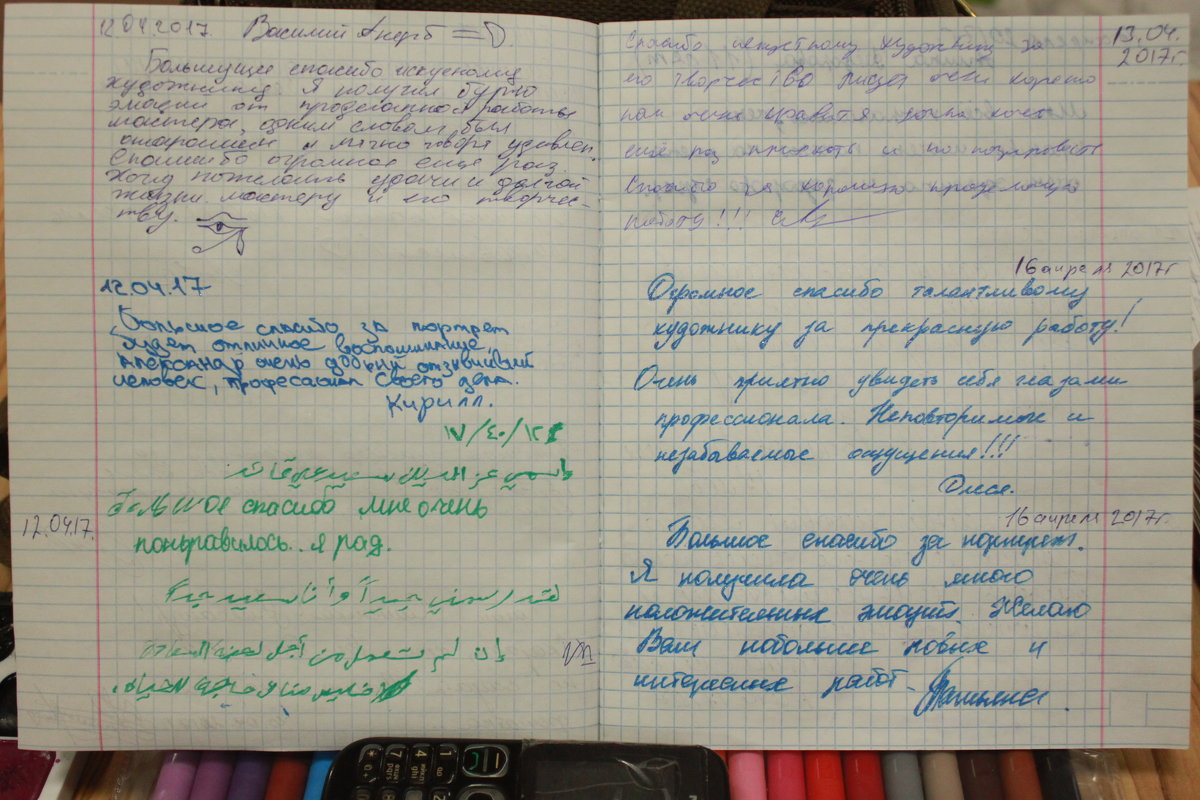 12.04.2017. Василий
Большущее спасибо искусному
художнику я получил бурю
эмоции от проделанной работы
мастера, одним словом был
ошарашен и лично говоря удивлен.
Спасибо огромное ещё раз
хочу пожелать удачи и долгой
жизни мастеру и его творчес-
тву.
12.04.17
Большое спасибо за портрет
будет отличное воспоминание,
Александр очень добрый отзывчивый
человек, професионал своего дела.
Кирилл.
١٧/٤٠/١٢
Большое спасибо мне очень
12.04.17.
понравилось.. я рад.
لقد رسمني جيداً وأنا سعيد جداً
إن لم تعمل من أجل
13.04.
2017г.
Спасибо искустному художнику за
его творчество рисует очень хорошо
нам очень нравится хочу
ещё раз приехать и попозировать
Спасибо за хорошую проделаную
работу!!!
16 апреля 2017г
Огромное спасибо талантливому
художнику за прекрасную работу!
Очень приятно увидеть себя глазами
профессионала. Неповторимые и
незабываемые ощущения!!!
Олеся.
16 апреля 2017г.
Большое спасибо за портрет.
Я получила очень много
положительных эмоций. Желаю
Вам побольше новых и
интересных работ. Татьяна.